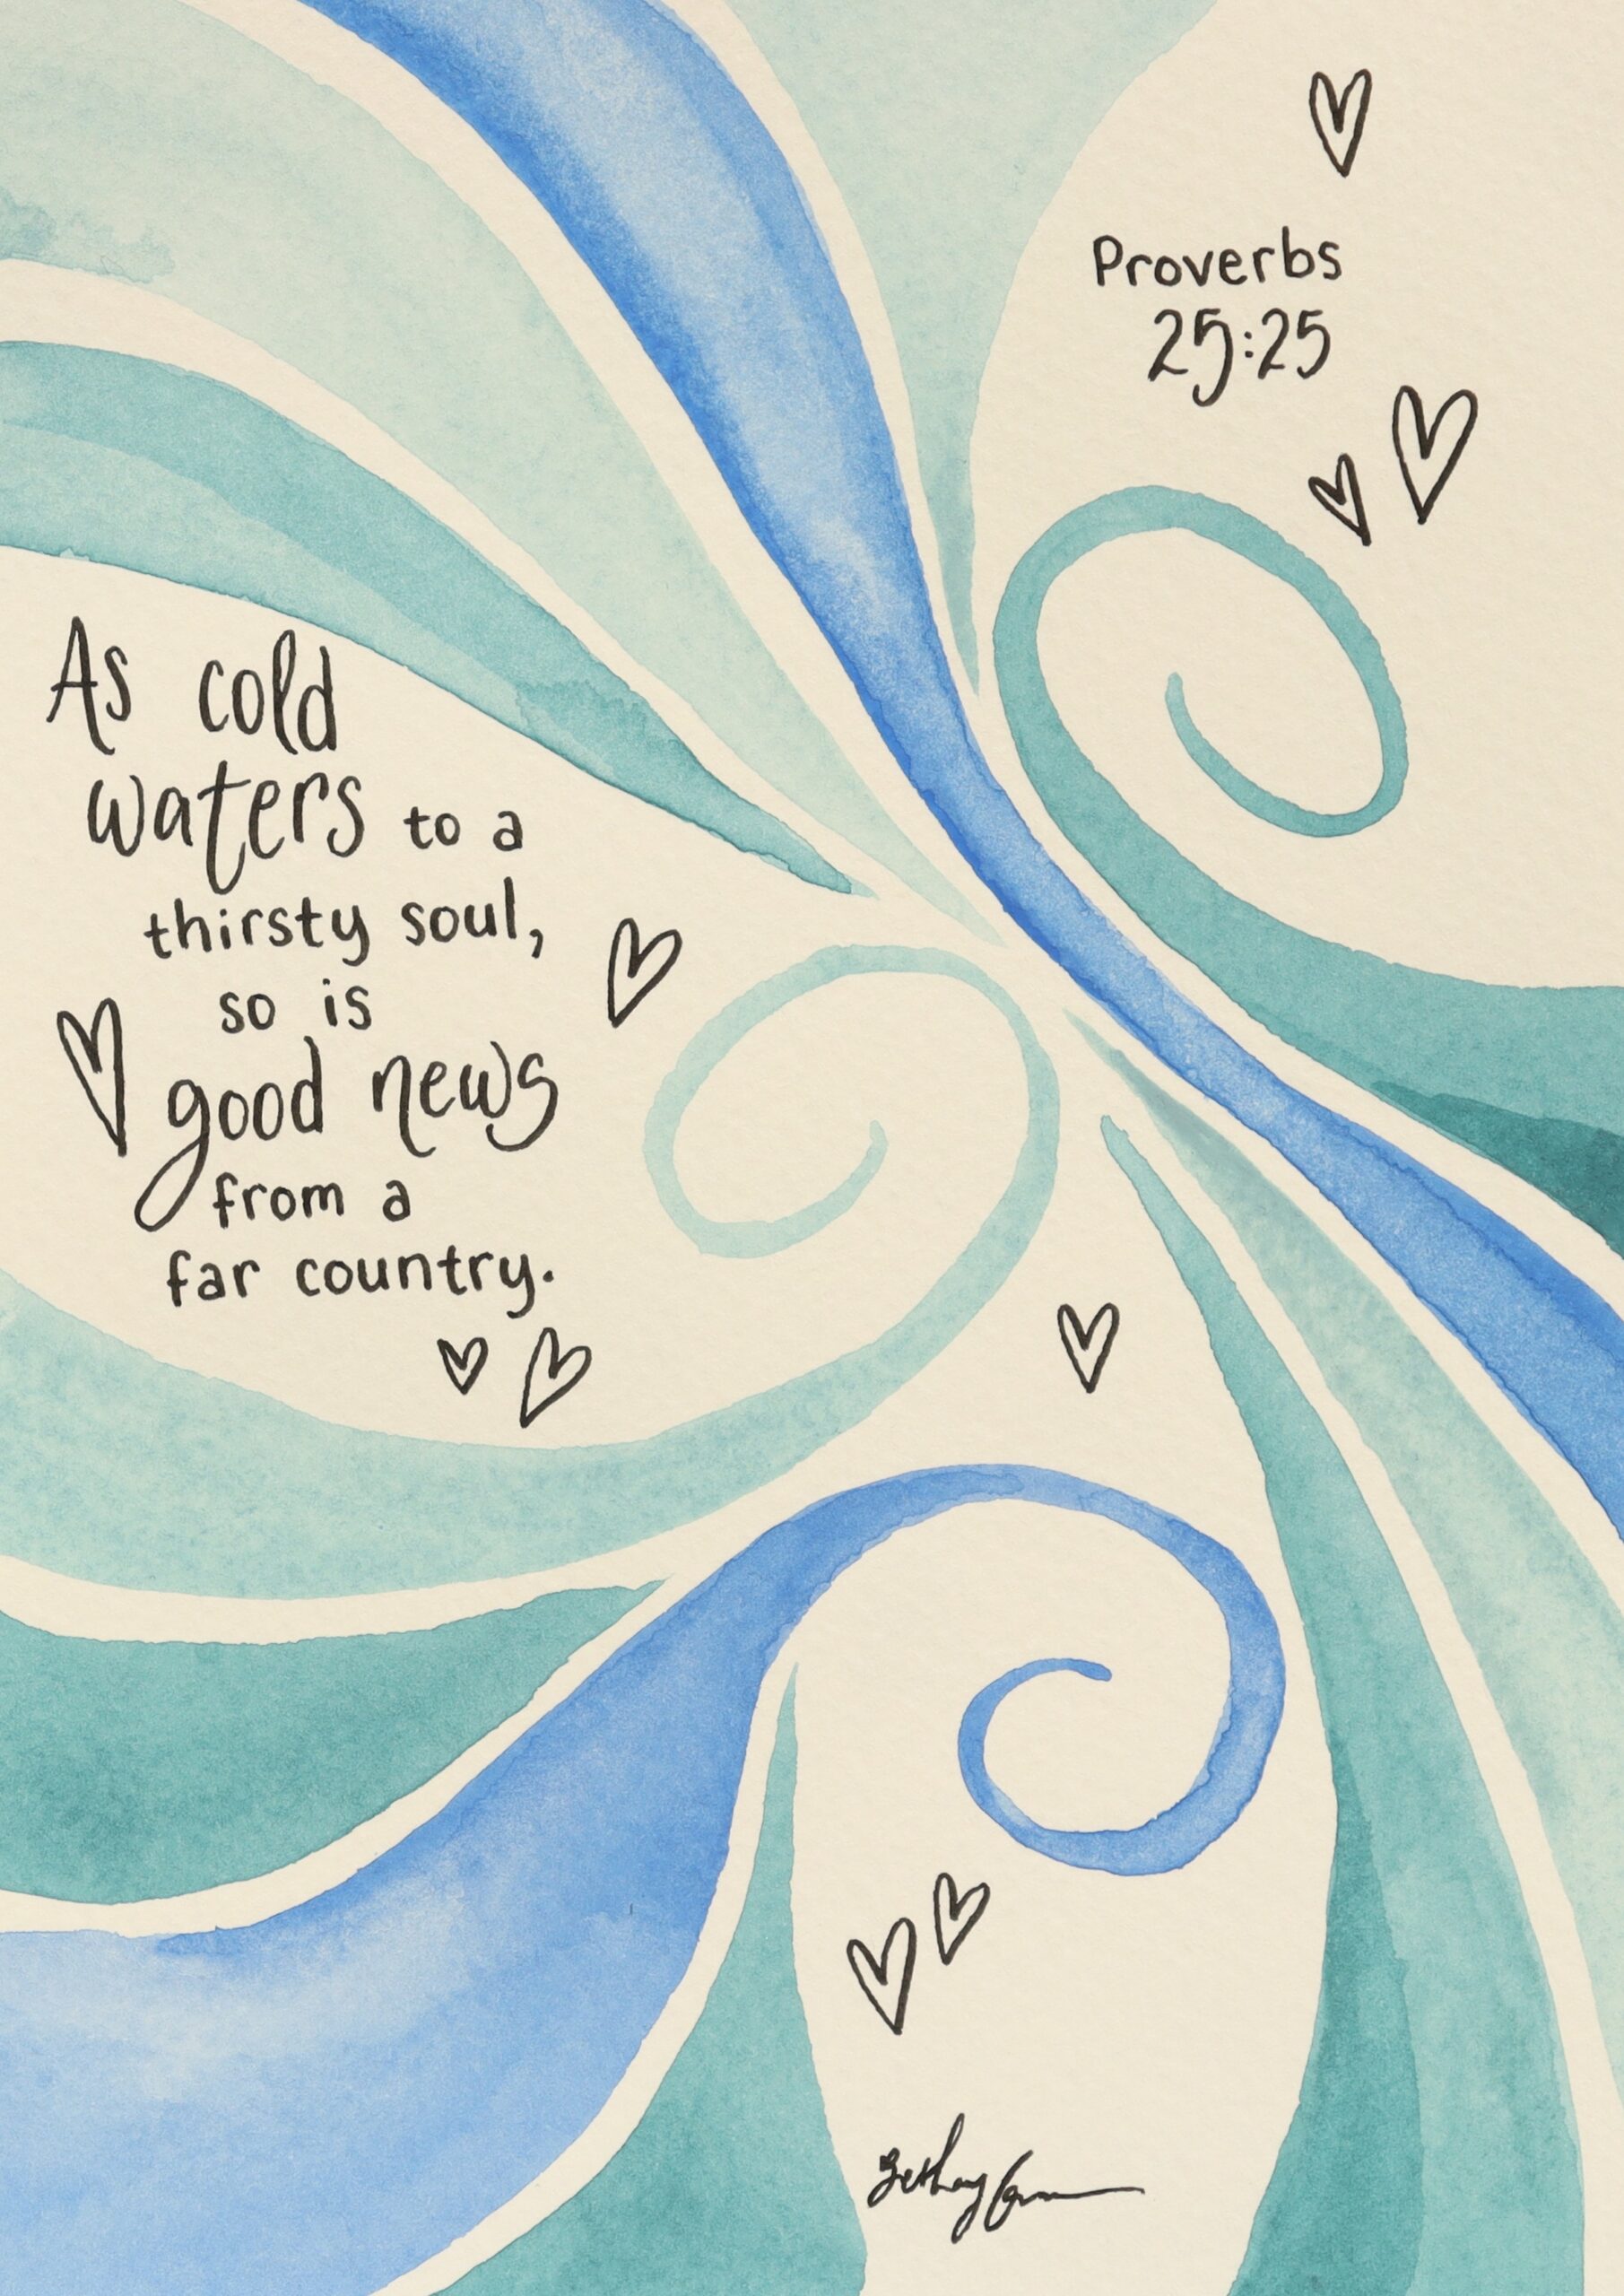 As cold
waters to a
thirsty soul,
so is
good news
from a
far country.
Proverbs
25:25